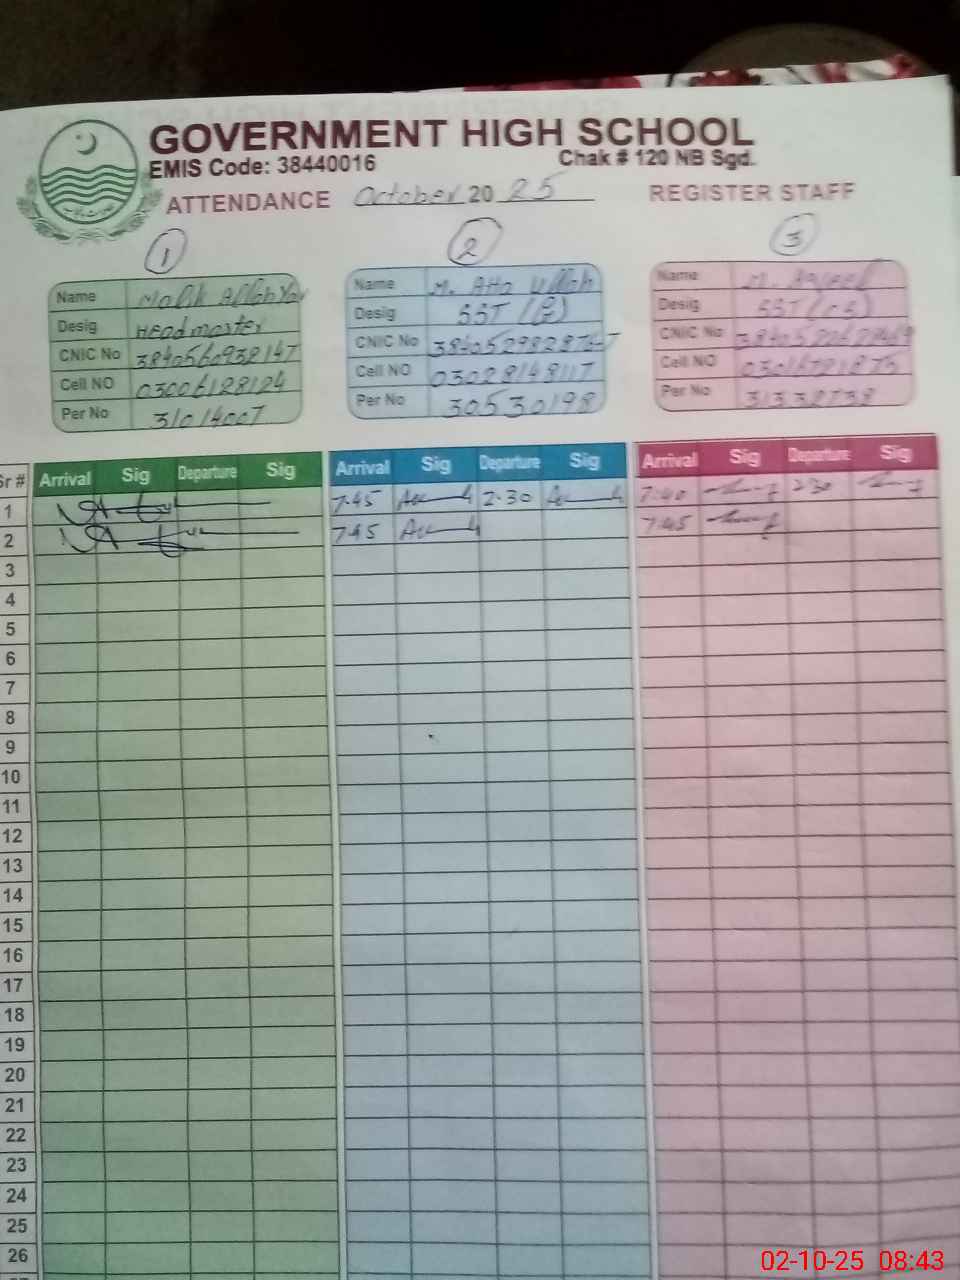 GOVERNMENT HIGH SCHOOL
EMIS Code: 38440016 Chak # 120 NB Sgd.
ATTENDANCE October 2025 REGISTER STAFF
1 2 3
Name Malik Allah Yar Name M. Atta Ullah Name M. Aqeel
Desig Headmaster Desig SST Desig SST (CS)
CNIC No 3840560938147 CNIC No CNIC No
Cell NO 03006128124 Cell NO 03028148117 Cell NO
Per No 31014007 Per No 30530198 Per No 31332738
Sr # Arrival Sig Departure Sig Arrival Sig Departure Sig Arrival Sig Departure Sig
1 7.45 2.30 7:40 2:30
2 7.45 7:45
3
4
5
6
7
8
9
10
11
12
13
14
15
16
17
18
19
20
21
22
23
24
25
26
02-10-25 08:43